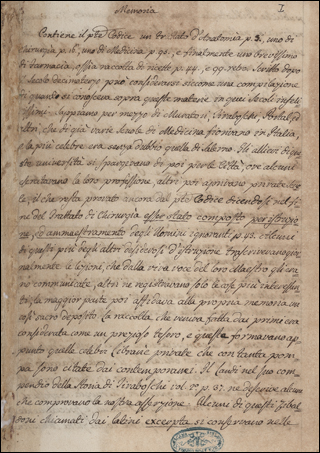 Memoria
I.
Contiene il pnte Codice un trattato d'Anatomia p. 3, uno di
Chirurgia p. 16, uno di Medicina p. 90, e finalmente uno brevissimo
di farmacia, ossia raccolta di ricette p. 44, e 99 retro. Scritto dopo
il secolo decimoterzo può considerarsi siccome una compilazione
di quanto si conosceva sopra queste materie in quei secoli
Sappiamo per mezzo di Muratori, Tiraboschi, Portal, ed
altri, che di già varie Scuole di Medicina fiorivano in Italia,
la più celebre era senza dubbio quella di Salerno. Gli allievi di que
ste università si spargevano di poi per le Città, ove alcuni
esercitavano la loro professione, altri poi aprivano private
il che resta provato ancora dal pnte Codice dicendosi nel fi
ne del Trattato di Chirurgia esser stato composto per istruzio
ne, ed ammaestramento degli Uomini ignoranti p. 43. Alcuni
di questi più degli altri desiderosi d'istruzione trascrivevano
nalmente le lezioni, che dalla viva voce del loro Maestro gli era
no communicate, altri ne registravano solo le cose più interessan
ti, la maggior parte poi affidava alla propria memoria un
così sacro deposito. La raccolta, che veniva fatta dai primi era
considerata come un prezioso tesoro, e queste formavano ap
punto quelle celebri Librarie private che con tanta pom
pa sono citate dai contemporanei. Il Landi nel suo com
pendio della Storia di Tiraboschi vol. 2° p. 87. ne descrive alcune
che comprovano la nostra asserzione. Alcuni di questi Zibal
doni chiamati dai latini excerpta si conservano nelle